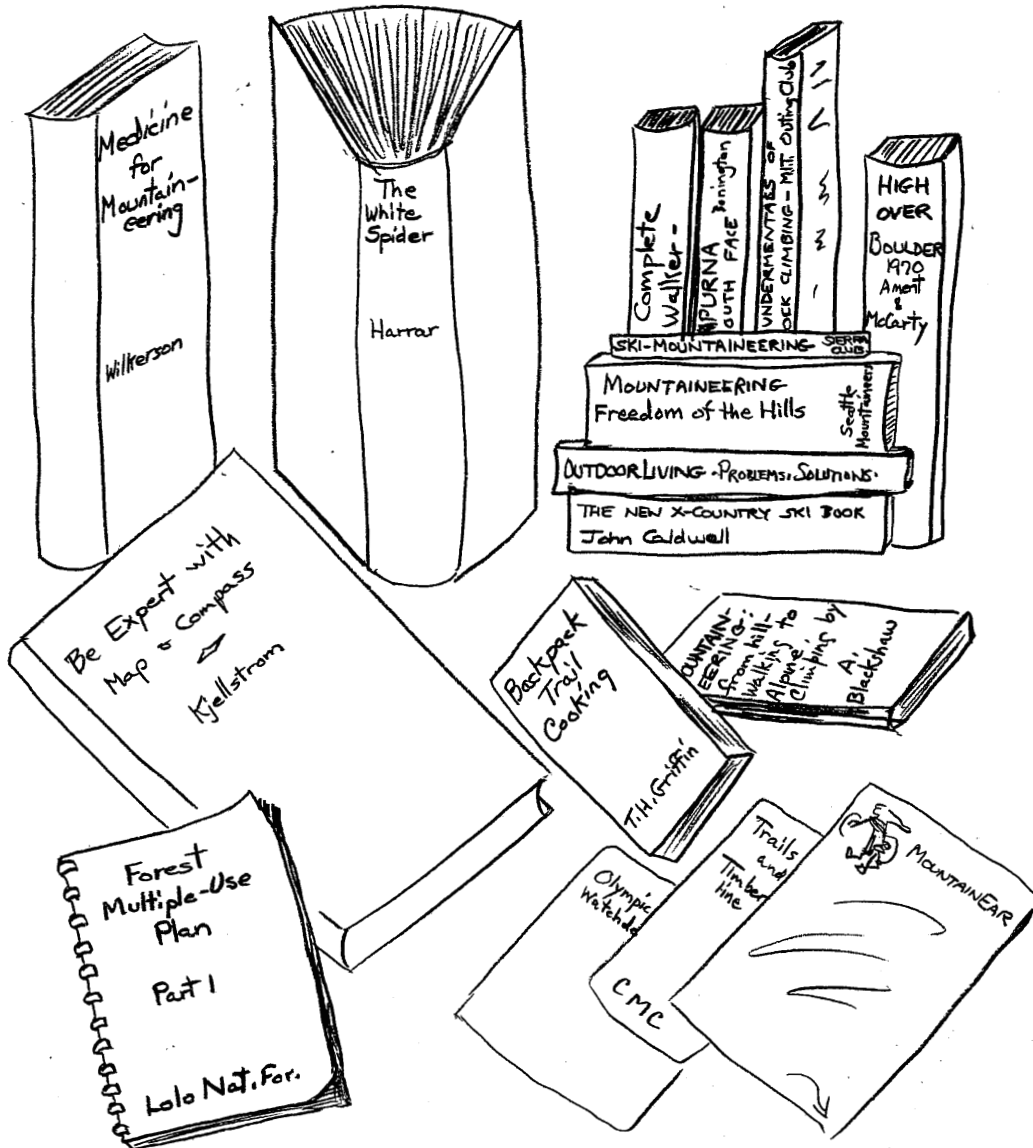 Medicine
for
Mountain-
eering
Wilkerson
The
White
Spider
Harrar
Complete
Walker-
APURNA
OUTH FACE Bonington
UNDERMENTALS OF
OCK CLIMBING - MIT. Outing Club
HIGH
OVER
BOULDER
1970
Ament
&
McCarty
SKI-MOUNTAINEERING SIERRA
CLUB
MOUNTAINEERING
Freedom of the Hills
Seattle
Mountaineers
OUTDOOR LIVING · PROBLEMS · SOLUTIONS ·
THE NEW X-COUNTRY SKI BOOK
John Caldwell
Be Expert with
Map & Compass
Kjellstrom
Backpack
Trail
Cooking
T.H. Griffin
OUNTAIN-
EERING:
from hill-
Walking to
Alpine
Climbing by
A.
Blackshaw
Forest
Multiple-Use
Plan
Part 1
Lolo Nat. For.
Olympic
Watchdo
Trails
and
Timber
line
CMC
MOUNTAINEAR